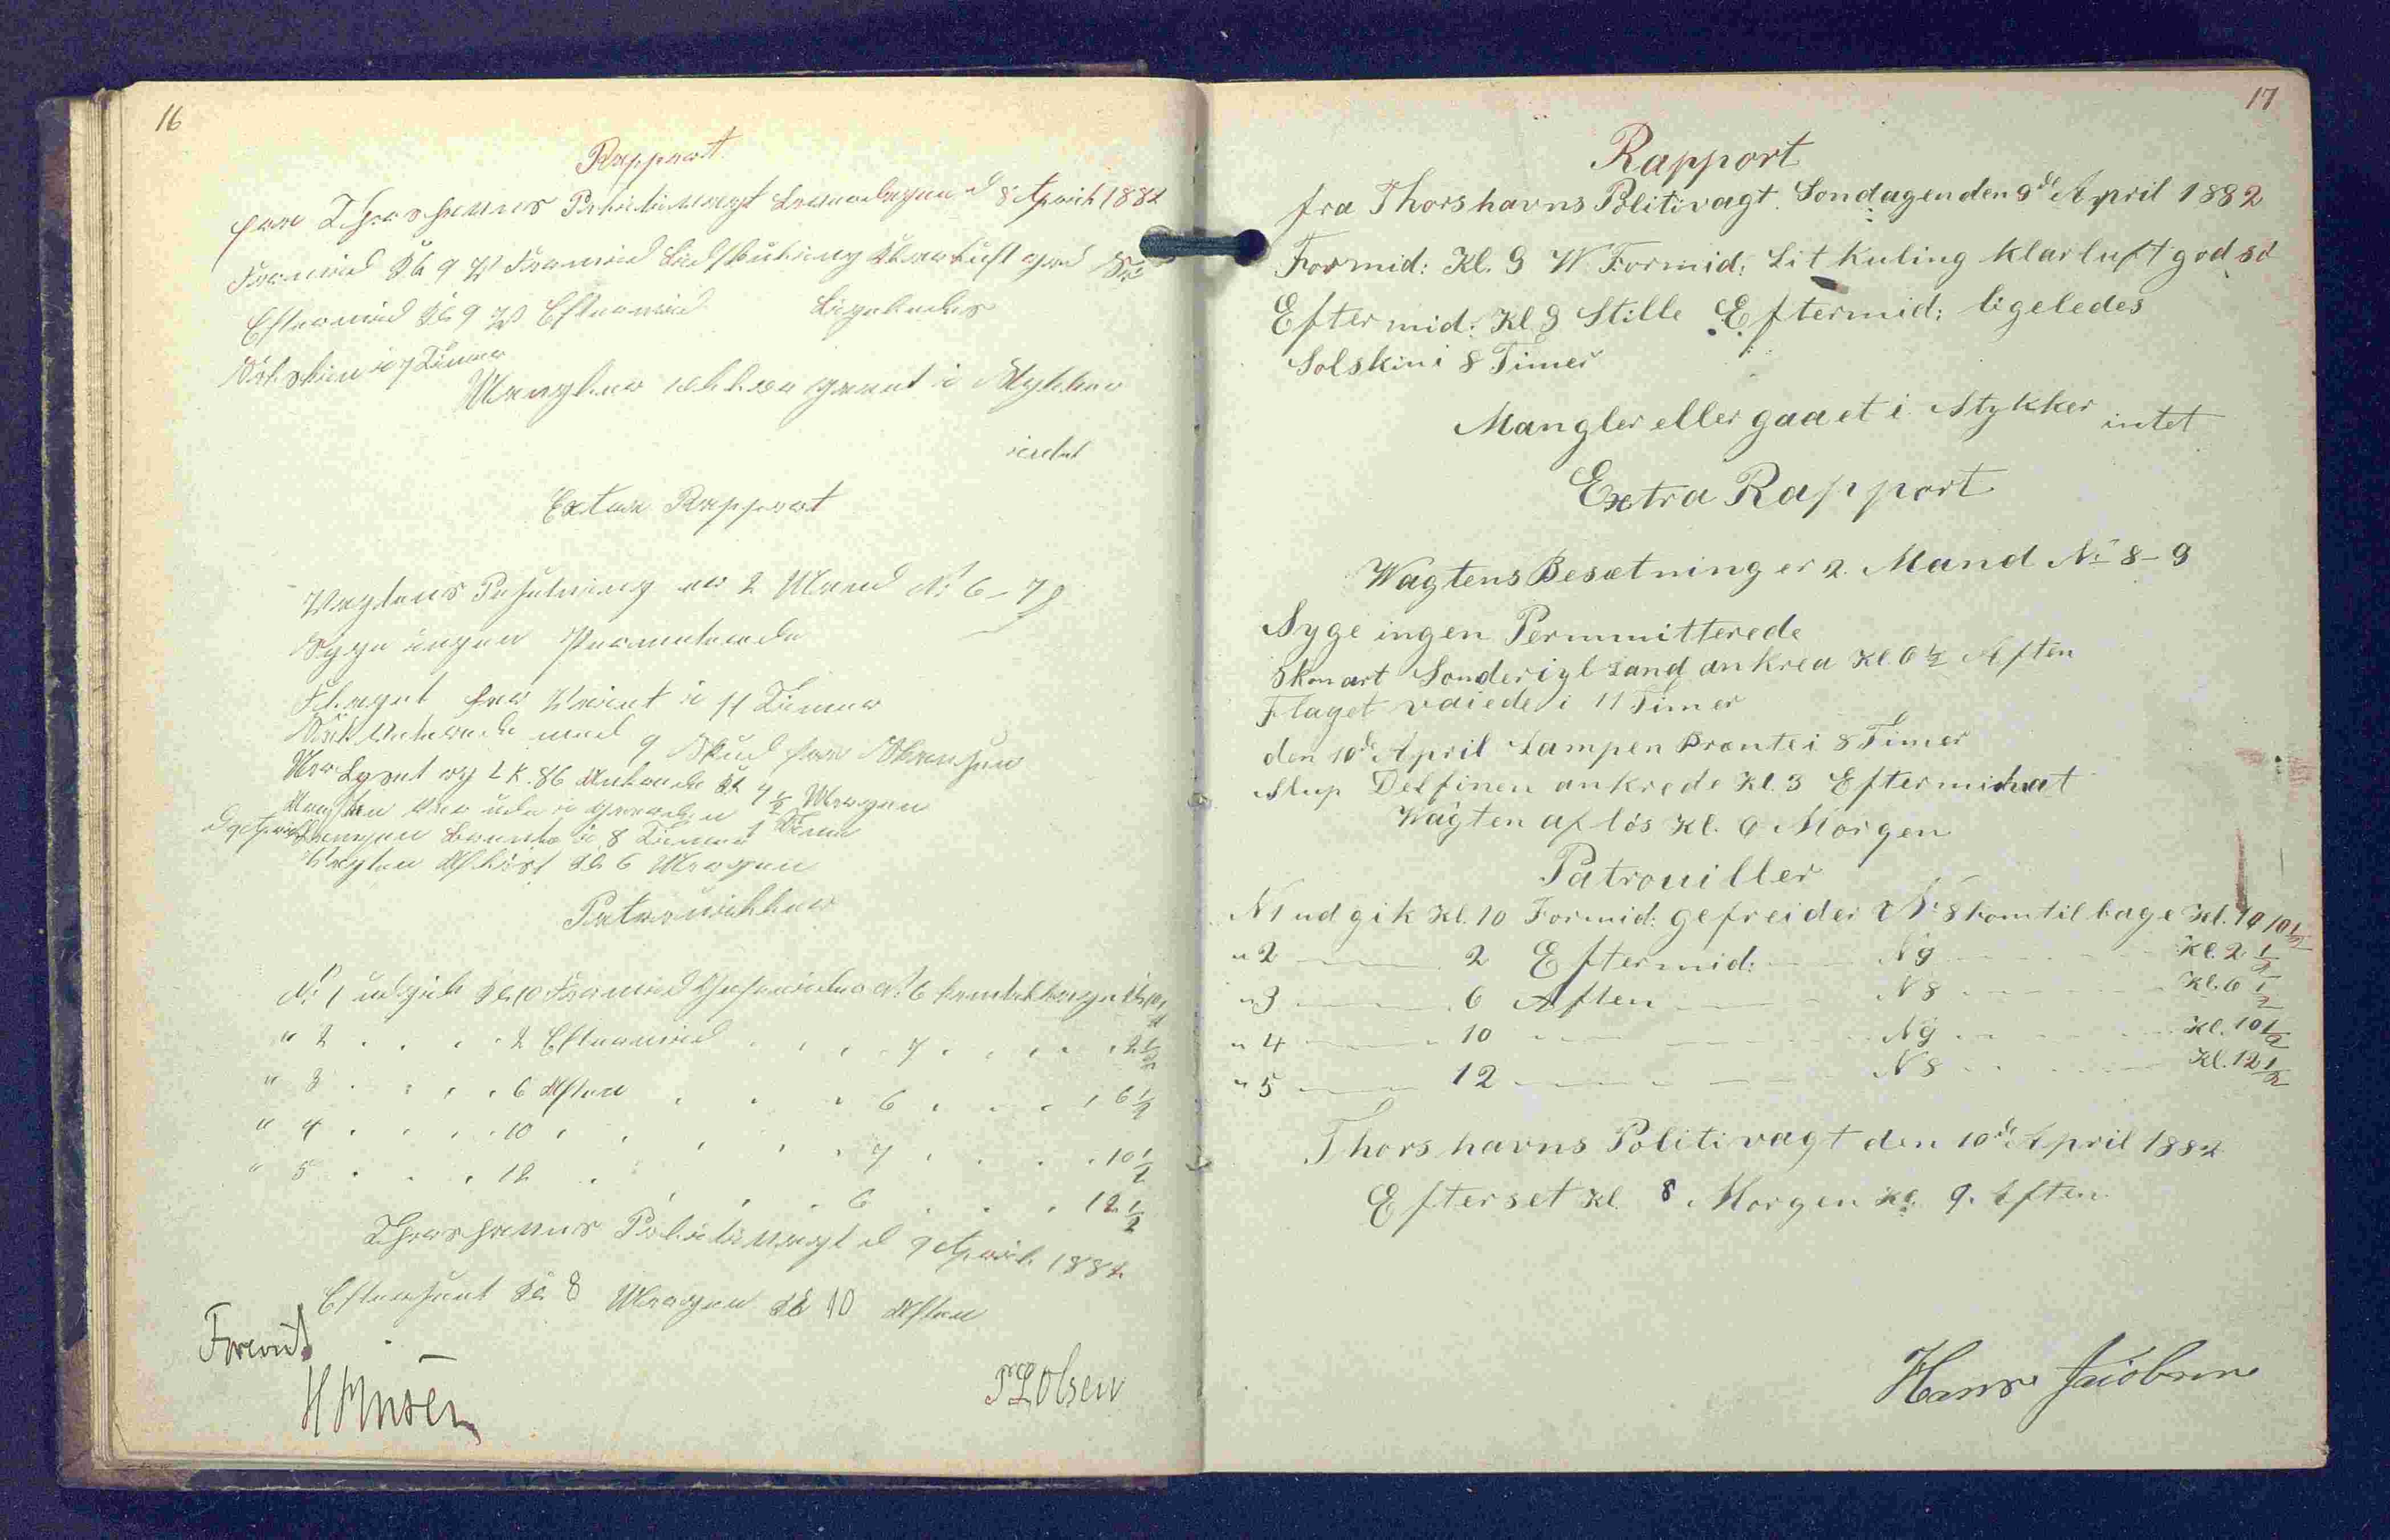 16
Rapport
fra Thorshavns Politivagt Leverdagen d 8 April 1882
Formid Kl 9 W Formid Lidt Kuling Klarluft god Sö
Eftermid Kl 9 W Eftermid Ligeledes
Solskin i 7 Timer
Mangler eller gaaet i Stykker
intet
Extra Rapport
Vagtens Besetning er 2 Mand No 6-7
Syge ingen Permiterede
Flaget har Veiet i 11 Timer
Saluterede med 9 Skud fra Skansen
Kl 4 1/2 Morgen
Lampen brente i 8 Timer
Vagten Aflöst Kl 6 Morgen
Patrouiller
No 1 udgik Kl 10 Formid Gefreider No 6 kom tilbage Kl 10 1/2
" 2 . . . . 2 Eftermid . . . 7 . . . . 2 1/2
" 3 . . . . 6 Aften . . . 6 . . . . 6 1/2
" 4 . . . . 10 . . . . . 7 . . . . 10 1/2
" 5 . . . . 12 . . . . . 6 . . . . 12 1/2
Thorshavns Politivagt d 9 April 1882
Efterseet Kl 8 Morgen Kl 10 Aften
Forevist
P L Olsen
17
Rapport
fra Thorshavns Politivagt. Sondagen den 9de April 1882
Formid: Kl. 9 W. Formid: Lit Kuling klar luft god sö
Eftermid: Kl. 9 Stille Eftermid: ligeledes
Solskin i 8 Timer
Mangler eller gaaet i Stykker intet
Extra Rapport
Wagtens Besætning er 2. Mand No 8-9
Syge ingen Permmitterede
Skonart Sonderiyl sand ankrea Kl. 6 1/2 Aften
Flaget vaiede i 11 Timer
den 10de April Lampen Brænte i 8 Timer
Slup Delfinen ankrede Kl. 3 Eftermidnat
Wagten aflös Kl. 6 Morgen
Patrouiller
N 1 udgik Kl. 10 Formid: gefreider No 8 kom tilbage Kl. 10 10 1/2
" 2 — 2 Eftermid: — N 9 — Kl. 2 1/2
" 3 — 6 Aften — N 8 — Kl. 6 1/2
" 4 — 10 — N 9 — Kl. 10 1/2
" 5 — 12 — N 8 — Kl. 12 1/2
Thorshavns Politivagt den 10de April 1882
Efterset Kl. 8 Morgen Kl. 9. Aften.
Hans Jacobsen